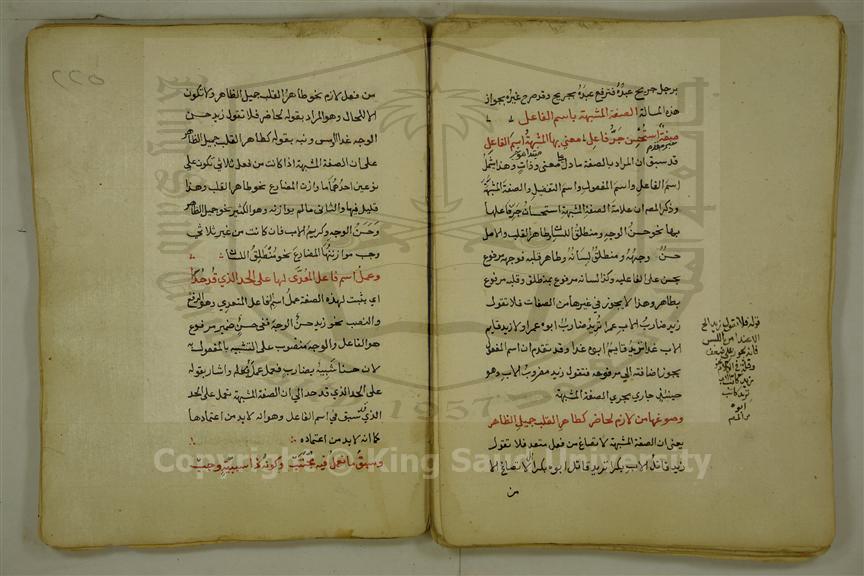 برجل جريح عبدُه فترفع عبدُه بجريح وقد صرح غيره بجواز
هذه المسالة الصفة المشبهة باسم الفاعل
صفة استحسن جر فاعل معنى بها المشبهة اسم الفاعل
خبر مقدم مبتدا موخر
قد سبق ان المراد بالصفة ما دل على معنى وذات وهذا يشمل
اسم الفاعل واسم المفعول وافعل التفضيل والصفة المشبهة
وذكر المصـ ان علامة الصفة المشبهة استحسان جر فاعلها
بها نحو حسن الوجه ومنطلق اللسان وطاهر القلب والاصل
حسنٌ وجهُه ومنطلق لسانُه وطاهر قلبه فوجهه مرفوع
بحسن على الفاعلية وكذا لسانه مرفوع بمنطلق وقلبه مرفوع
بطاهر وهذا لا يجوز في غيرها من الصفات فلا تقول
زيد ضارب الاب عمرا تريد ضارب ابوه عمرا ولا زيد قايم
الاب غدا تريد قايم ابوه غدا وقد تقدم ان اسم المفعول
يجوز اضافته الى مرفوعه فتقول زيد مضروب الاب وهو
حينئذ جاري مجرى الصفة المشبهة
وصوغها من لازم لحاضر كطاهر القلب جميل الظاهر
يعني ان الصفة المشبهة لا تصاغ من فعل متعد فلا تقول
زيد قاتل الاب بكرا تريد قاتل ابوه بكرا بل لا تصاغ الا
من
قوله فلا تقول زيد الخ
الا عند امن اللبس
فانه يجوز على ضعف
وقلة في الكلام
زيد كاتب الاب
تريد كاتب
ابوه
٢٢٥
من فعل لازم نحو طاهر القلب جميل الظاهر ولا تكون
الا للحال وهو المراد بقوله لحاضر فلا تقول زيد حسن
الوجه غدا او امس ونبه بقوله كطاهر القلب جميل الظاهر
على ان الصفة المشبهة اذا كانت من فعل ثلاثي تكون على
نوعين احدهما ما وازن المضارع نحو طاهر القلب وهذا
قليل فيها والثاني ما لم يوازنه وهو الكثير نحو جميل الظاهر
وحَسَن الوجه وكريم الاب فان كانت من غير ثلاثي
وجب موازنتها المضارع نحو منطلق اللسان
وعملُ اسم فاعل المُعدَّى لها على الحد الذي قد حُدّا
اي يثبت لهذه الصفة عملُ اسم الفاعل المتعدي وهو الرفع
والنصب نحو زيد حسنٌ الوجهَ ففي حسن ضمير مرفوع
هو الفاعل والوجه منصوب على التشبيه بالمفعول به
لان حسنا شبيه بضارب فعمل عمله واشار بقوله
على الحد الذي قد حدا الى ان الصفة المشبهة تعمل على الحد
الذي سبق في اسم الفاعل وهو انه لا بد من اعتمادها
كما انه لا بد من اعتماده
وسبقُ ما تعملُ فيه مُجتنَب وكونُه ذا سببيةٍ وجب
Copyright © King Saud University
1957